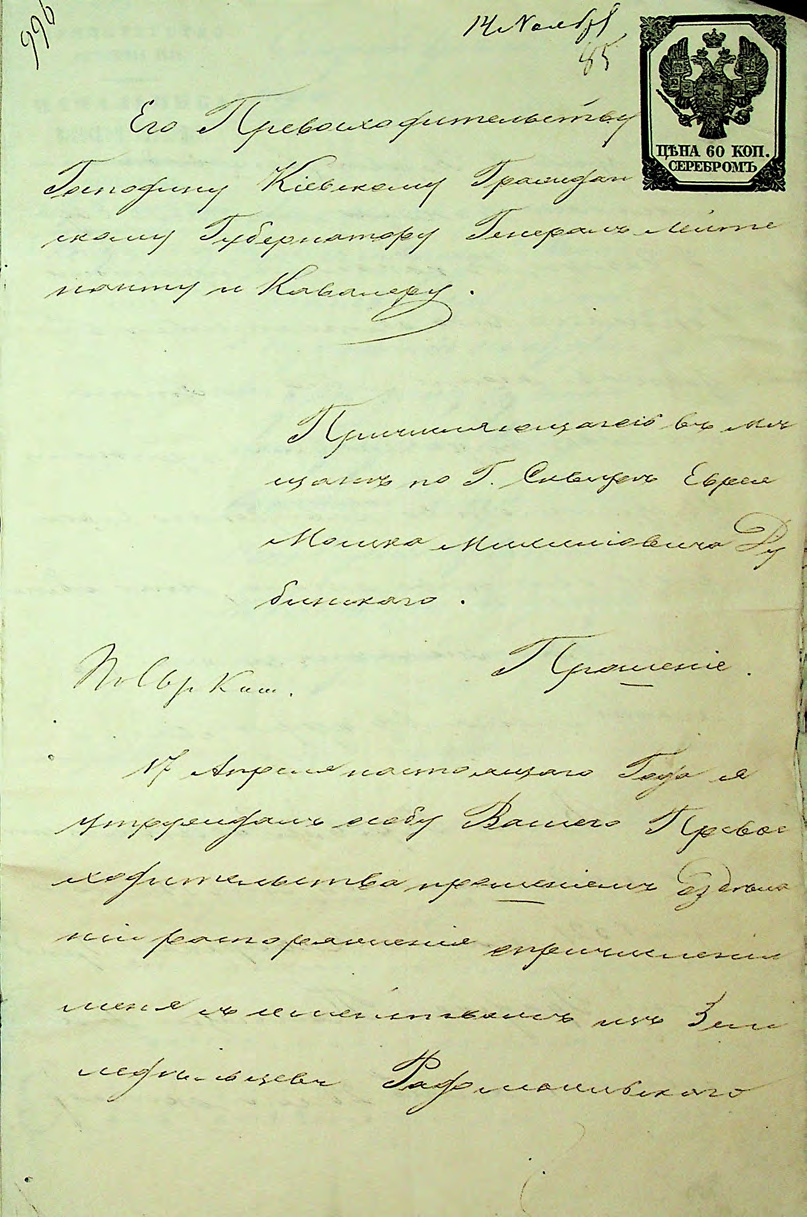 996
14 Ноября
85
ЦѢНА 60 КОП.
СЕРЕБРОМЪ
Его Превосходительству
Господину Кіевскому Граждан
скому Губернатору Генералъ Лейте
нанту и Кавалеру.
Причисляющагося въ мѣ
щанъ по Г. Сквирѣ Еврея
Мошка Ду
бинскаго.
Прошеніе.
17 Апрѣля настоящаго Года я
утруждалъ особу Вашего Превос
ходительства прошеніемъ
ніи распоряженія о причисленіи
меня съ семействомъ изъ Зем
ледѣльцевъ